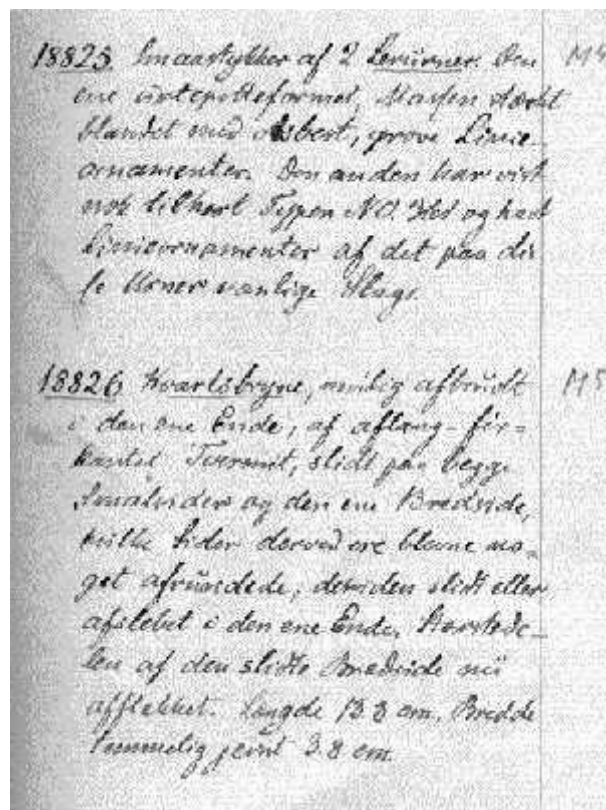 18825. Smaastykker af 2 Lerurner. Den M4
ene urtepotteformet, Massen stærkt
blandet med Asbest, grove Linie-
ornamenter. Den anden har vist-
nok tilhørt Typen NO. og havt
Linieornamenter af det paa dis-
se Urner vanlige Slags.
18826. Kvartsbryne, muligens afbrudt M5
i den ene Ende, af aflang-fir-
kantet Tversnit, slidt paa begge
Smalsider og den ene Bredside,
hvilke Sider derved ere blevne no-
get afrundede; desuden slidt eller
afslebet i den ene Ende. Størstede-
len af den slidte Bredside nu
afflekket. Længde 13.3 cm. Bredde
temmelig jevnt 3.8 cm.